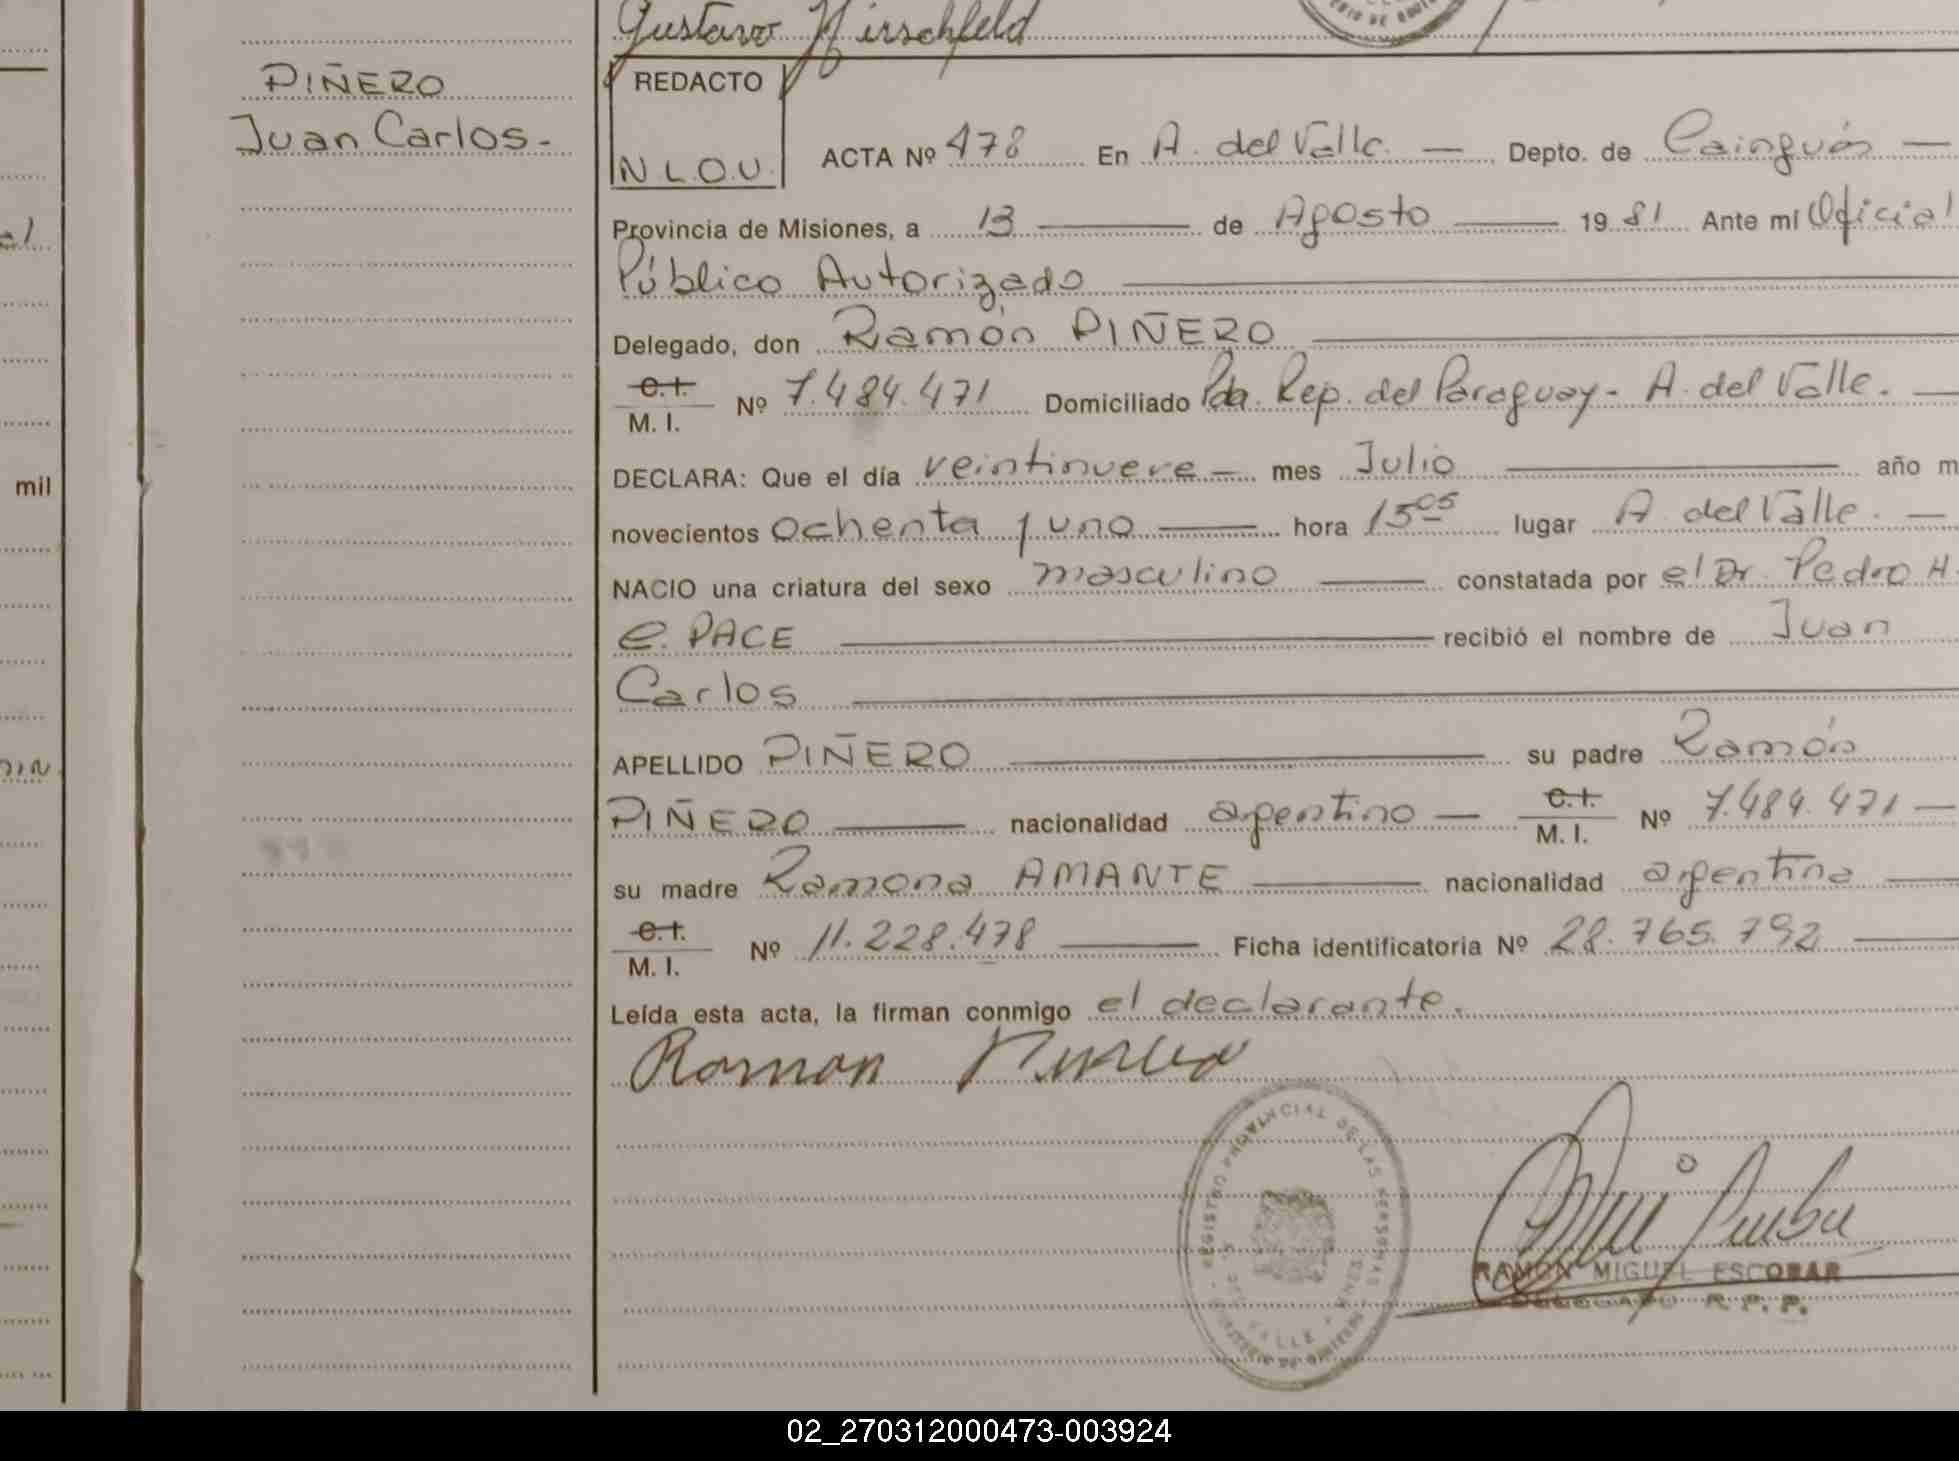 Gustavo Hirschfeld
PIÑERO
Juan Carlos-
REDACTO
N L.O.U.
ACTA Nº 478 En A. del Valle. — Depto. de Cainguás —
Provincia de Misiones, a 13 — de Agosto — 1981 Ante mí Oficial
Público Autorizado —
Delegado, don Ramón PIÑERO —
C.I.
M. I. Nº 7.484.471 Domiciliado Pda. Rep. del Paraguay- A. del Valle. —
DECLARA: Que el día veintinueve — mes Julio — año m
mil
novecientos ochenta y uno — hora 15 05 lugar A. del Valle. —
NACIO una criatura del sexo masculino — constatada por el Dr. Pedro H.
C. PACE — recibió el nombre de Juan
Carlos —
APELLIDO PIÑERO — su padre Ramón
PIÑERO — nacionalidad argentino — C.I. M. I. Nº 7.484.471 —
su madre Ramona AMANTE — nacionalidad argentina —
C.I.
M. I. Nº 11.228.478 — Ficha identificatoria Nº 28.765.792 —
Leída esta acta, la firman conmigo el declarante.
Ramon Piñero
REGISTRO PROVINCIAL DE LAS PERSONAS
RAMON MIGUEL ESCOBAR
DELEGADO R. P. P.
02_270312000473-003924